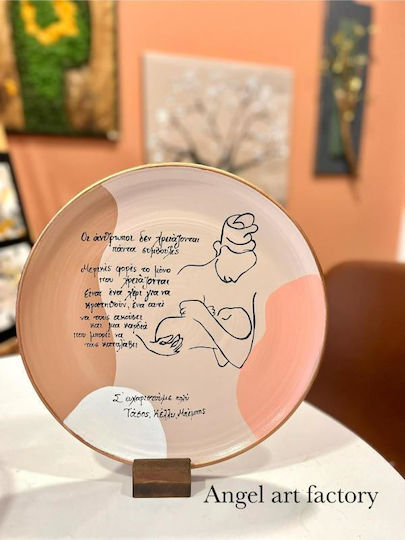 Οι άνθρωποι δεν χρειάζονται
πάντα συμβουλές
Μερικές φορές το μόνο
που χρειάζονται
είναι ένα χέρι για να
κρατηθούν, ένα αυτί
να τους ακούσει
και μια καρδιά
που μπορεί να
τους καταλάβει
Σ' ευχαριστούμε πολύ
Τάσος, Κέλλυ,
Angel art factory